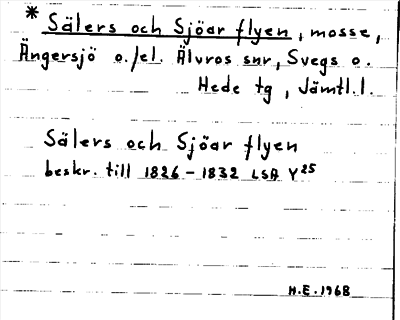 * Sälers och Sjöar flyen, mosse,
Ängersjö o./el. Älvros snr, Svegs o.
Hede tg, Jämtl.l.
Sälers och Sjöar flyen
beskr. till 1826-1832 LSA Y25
H.E. 1968